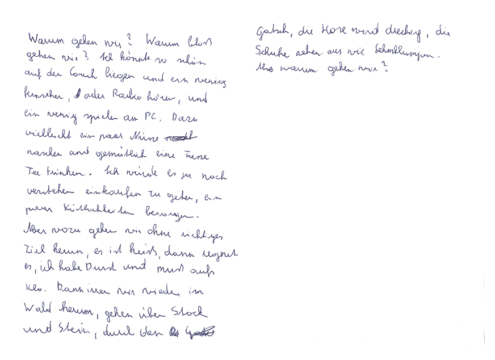 Warum gehen wir? Warum bloß
gehen wir? Ich könnte so schön
auf der Couch liegen und ein wenig
fernsehen, oder Radio hören, und
ein wenig spielen am PC. Dazu
vielleicht ein paar Nüsse
naschen und gemütlich eine Tasse
Tee trinken. Ich würde es ja noch
verstehen einkaufen zu gehen, ein
paar besorgen.
Aber wozu gehen wir ohne richtiges
Ziel herum, es ist heiß, dann regnet
es, ich habe Durst und muß aufs
Klo. Dann irren wir wieder im
Wald herum, gehen über Stock
und Stein, durch den
Gatsch, die Hose wird dreckig, die
Schuhe sehen aus wie
Also warum gehen wir?